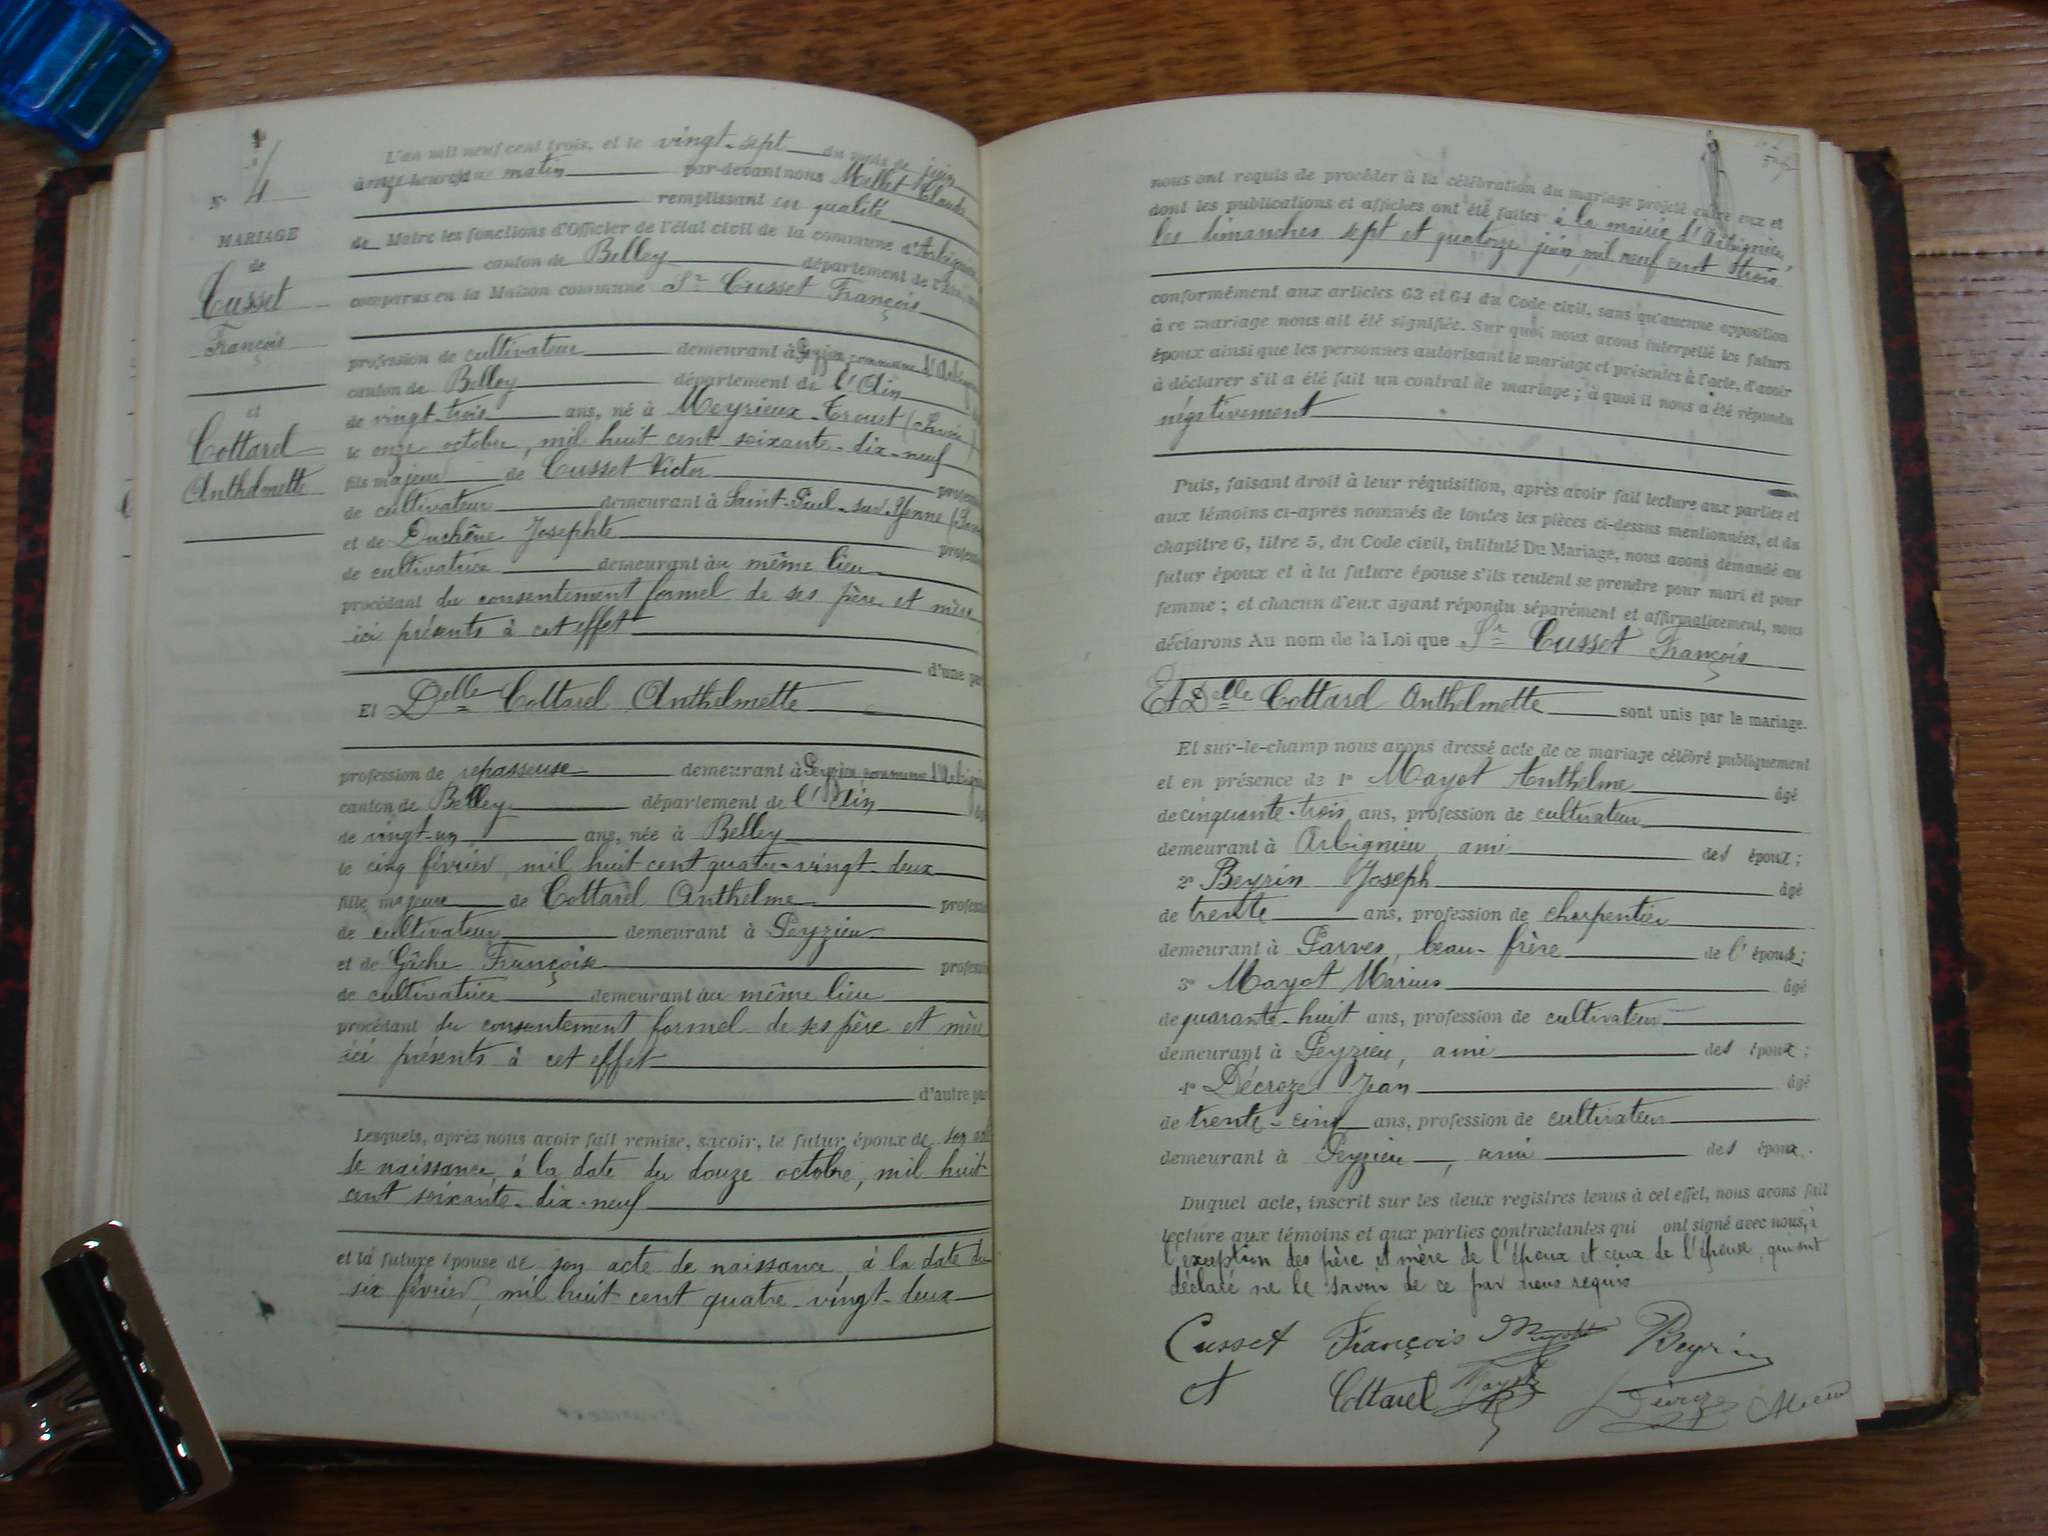 N° 4
MARIAGE
de
Cusset
François
et
Cottarel
Anthelmette
L'an mil neuf cent trois, et le vingt-sept du mois de juin
à onze heures du matin par-devant nous Mollet Claude
remplissant en qualité
de Maire les fonctions d'Officier de l'état civil de la commune d'Arbignieu
canton de Belley département de l'Ain,
comparus en la Maison commune Sr Cusset François
profession de cultivateur demeurant à Peyzieu commune d'Arbignieu
canton de Belley département de l'Ain
de vingt-trois ans, né à Meyrieux-Trouet (Savoie)
le onze octobre, mil huit cent soixante-dix-neuf
fils majeur de Cusset Victor profession
de cultivateur demeurant à Saint-Paul-sur-Yenne
et de Duchêne Josephte profession
de cultivatrice demeurant au même lieu
procédant du consentement formel de ses père et mère
ici présents à cet effet
d'une part
Et Delle Cottarel Anthelmette
profession de repasseuse demeurant à Peyzieu commune d'Arbignieu
canton de Belley département de l'Ain
de vingt-un ans, née à Belley
le cinq février mil huit cent quatre-vingt-deux
fille majeure de Cottarel Anthelme profession
de cultivateur demeurant à Peyzieu
et de Gâche Françoise profession
de cultivatrice demeurant au même lieu
procédant du consentement formel de ses père et mère
ici présents à cet effet
d'autre part
Lesquels, après nous avoir fait remise, savoir, le futur époux de son acte
de naissance, à la date du douze octobre, mil huit
cent soixante-dix-neuf
et la future épouse de son acte de naissance, à la date du
six février, mil huit cent quatre-vingt-deux
nous ont requis de procéder à la célébration du mariage projeté entre eux et
dont les publications et affiches ont été faites à la mairie d'Arbignieu,
les dimanches sept et quatorze juin, mil neuf cent trois
conformément aux articles 63 et 64 du Code civil, sans qu'aucune opposition
à ce mariage nous ait été signifiée. Sur quoi nous avons interpellé les futurs
époux ainsi que les personnes autorisant le mariage et présentes à l'acte, d'avoir
à déclarer s'il a été fait un contrat de mariage ; à quoi il nous a été répondu
négativement
Puis, faisant droit à leur réquisition, après avoir fait lecture aux parties et
aux témoins ci-après nommés de toutes les pièces ci-dessus mentionnées, et du
chapitre 6, titre 5, du Code civil, intitulé Du Mariage, nous avons demandé au
futur époux et à la future épouse s'ils veulent se prendre pour mari et pour
femme ; et chacun d'eux ayant répondu séparément et affirmativement, nous
déclarons Au nom de la Loi que Sr Cusset François
Et Delle Cottarel Anthelmette sont unis par le mariage.
Et sur-le-champ nous avons dressé acte de ce mariage célébré publiquement
et en présence de 1° Mayot Anthelme âgé
de cinquante-trois ans, profession de cultivateur
demeurant à Arbignieu ami des époux ;
2° Beyrin Joseph âgé
de trente ans, profession de charpentier
demeurant à Parves, beau-frère de l'époux ;
3° Mayot Marius âgé
de quarante-huit ans, profession de cultivateur
demeurant à Peyzieu, ami des époux ;
4° Décroze Jean âgé
de trente-cinq ans, profession de cultivateur
demeurant à Peyzieu, ami des époux.
Duquel acte, inscrit sur les deux registres tenus à cet effet, nous avons fait
lecture aux témoins et aux parties contractantes qui ont signé avec nous, à
l'exception des père et mère de l'époux et ceux de l'épouse, qui ont
déclaré ne le savoir de ce par nous requis
Cusset François Mayot Beyrin
A Cottarel Mayot